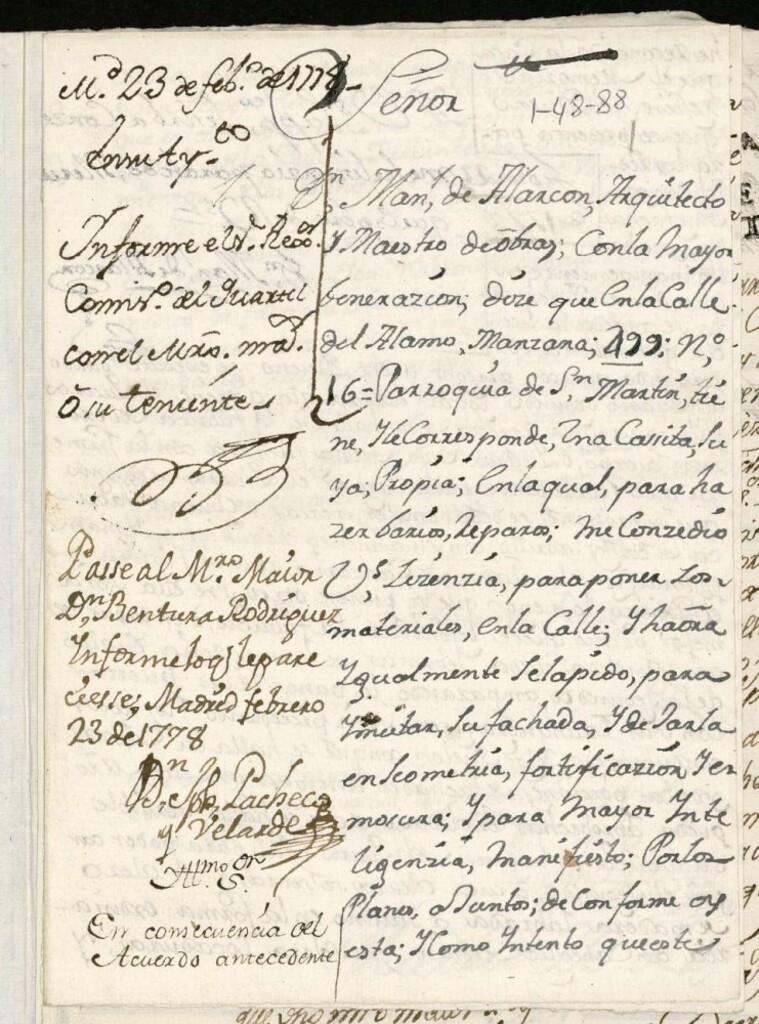 M.d 23 de feb.o de 1778
En su ay.to
Informe el S.r Reg.or
Comis.o del quartel
con el Mro. ma.r
ò su teniente
Passe al M.ro Maior
D.n Bentura Rodriguez
Informe loq.e le pare
ciesse; Madrid febrero
23 de 1778
D.n Jph. Pacheco
y Velarde
Ill.mo S.or
En consecuencia del
Acuerdo antecedente
Señor
1-48-88
D.n Man.l de Alarcon, Arquitecto
Y Maestro de óbras; Conla mayor
benerazion; dize que Enla Calle
del Alamo, Manzana; 499; N.o
16= Parroquia de S.n Martin, tie
ne, Yle Corresponde, Una Cassita, su
ya, Propia; Enlaqual, para ha
zer barios, Reparos; me Conzedio
V.S. Lizenzia, para poner Los
materiales, enla Calle; Y haóra
Ygualmente Selapido, para
Ymutar, Su fachada, Y de Darla
enScometria, fortificazion Y er
mosura; Y para Mayor Ynte
ligenzia, Manifiesto; Por los
Planos, adjuntos; de Conforme oy
esta; Y Como Yntento que este